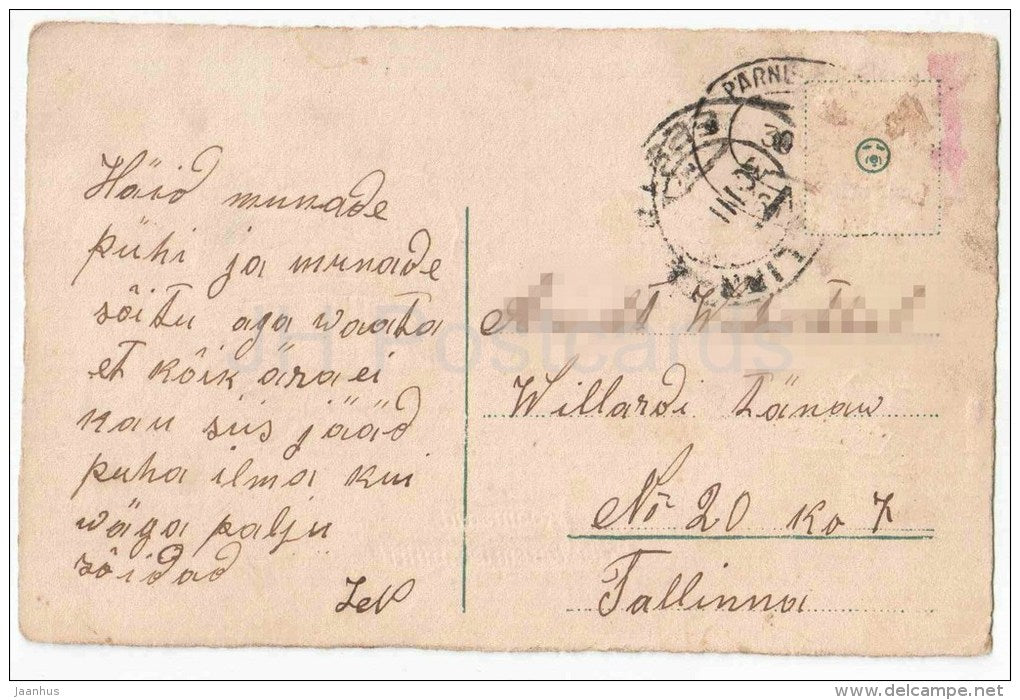 Häid munade
pühi ja munade
sõitu aga waata
et kõik ära ei
kau siis jääd
püha ilma kui
wäga palju
sõidad
PÄRNU
30
Willardi tänaw
No 20 ko 7
Tallinna
JH Postcards
jaanhus
www.delcampe.net